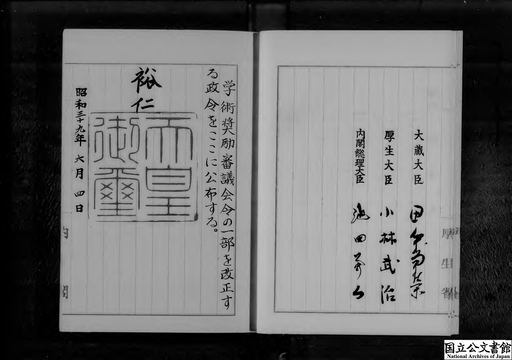 学術奨励審議会令の一部を改正す
る政令をここに公布する。
裕仁
天皇
御璽
昭和三十九年六月四日
内閣
大蔵大臣 田中角榮
厚生大臣 小林武治
内閣総理大臣 池田勇人
厚生省
国立公文書館
National Archives of Japan